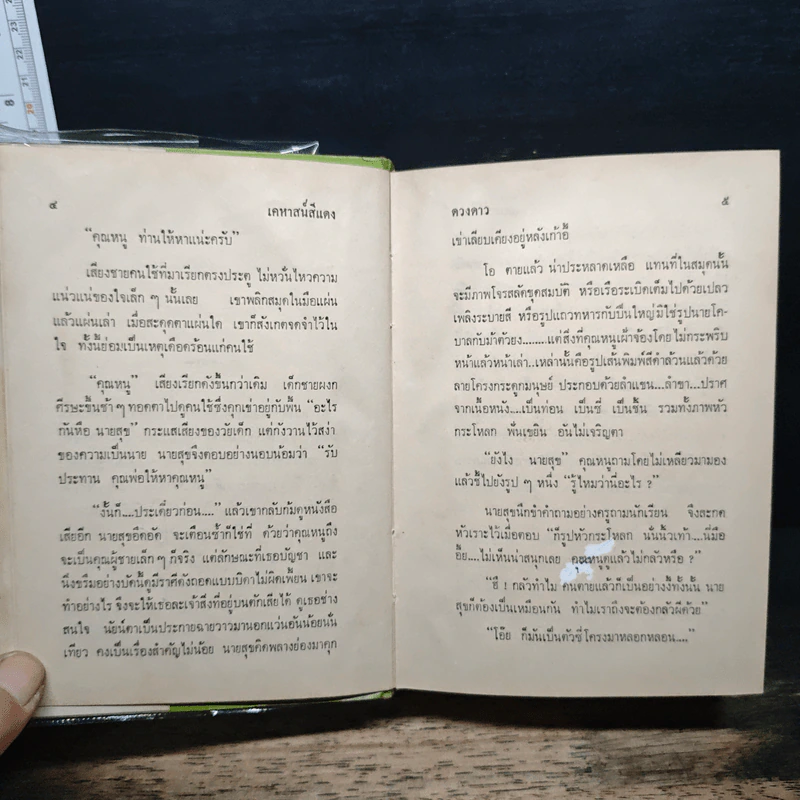 ๔
เคหาสน์สีแดง
“คุณหนู ท่านให้หาแน่ะครับ”
เสียงชายคนใช้ที่มาเรียกตรงประตู ไม่หวั่นไหวความ
แน่วแน่ของใจเล็ก ๆ นั้นเลย เขาพลิกสมุดในมือแผ่น
แล้วแผ่นเล่า เมื่อสะดุดตาแผ่นใด เขาก็สังเกตจดจำไว้ใน
ใจ ทั้งนี้ย่อมเป็นเหตุเดือดร้อนแก่คนใช้
“คุณหนู” เสียงเรียกดังขึ้นกว่าเดิม เด็กชายผงก
ศีรษะขึ้นช้า ๆ ทอดตาไปดูคนใช้ซึ่งคุกเข่าอยู่กับพื้น “อะไร
กันหือ นายสุข” กระแสเสียงของวัยเด็ก แต่กังวานไว้สง่า
ของความเป็นนาย นายสุขจึงตอบอย่างนอบน้อมว่า “รับ
ประทาน คุณพ่อให้หาคุณหนู”
“งั้นก็....ประเดี๋ยวก่อน....” แล้วเขากลับก้มดูหนังสือ
เสียอีก นายสุขอึดอัด จะเตือนซ้ำก็ใช่ที่ ด้วยว่าคุณหนูถึง
จะเป็นคุณผู้ชายเล็ก ๆ ก็จริง แต่ลักษณะที่เธอบัญชา และ
นิ่งขรึมอย่างบัดนี้ดูมีราศีดังถอดแบบบิดาไม่ผิดเพี้ยน เขาจะ
ทำอย่างไร จึงจะให้เธอละเจ้าสิ่งที่อยู่บนตักเสียได้ ดูเธอช่าง
สนใจ นัยน์ตาเป็นประกายฉายวาวมานอกแว่นอันน้อยนั่น
เทียว คงเป็นเรื่องสำคัญไม่น้อย นายสุขคิดพลางย่องมาคุก
ดวงดาว
๕
เข่าเลียบเคียงอยู่หลังเก้าอี้
โอ ตายแล้ว น่าประหลาดเหลือ แทนที่ในสมุดนั้น
จะมีภาพโจรสลัดขุดสมบัติ หรือเรือระเบิดเต็มไปด้วยเปลว
เพลิงระบายสี หรือรูปแถวทหารกับปืนใหญ่มิใช่รูปนายโค-
บาลกับม้าตัวยง........แต่สิ่งที่คุณหนูเฝ้าจ้องโดยไม่กระพริบ
หน้าแล้วหน้าเล่า..เหล่านั้นคือรูปเส้นพิมพ์สีดำล้วนแล้วด้วย
ลายโครงกระดูกมนุษย์ ประกอบด้วยลำแขน...ลำขา...ปราศ
จากเนื้อหนัง...เป็นท่อน เป็นซี่ เป็นชิ้น รวมทั้งภาพหัว
กระโหลก ฟันเขยิน อันไม่เจริญตา
“ยังไง นายสุข” คุณหนูถามโดยไม่เหลียวมามอง
แล้วชี้ไปยังรูป ๆ หนึ่ง “รู้ไหมว่านี่อะไร ?”
นายสุขนึกขำคำถามอย่างครูถามนักเรียน จึงสะกด
หัวเราะไว้เมื่อตอบ “ก็รูปหัวกระโหลก นั่นนิ้วเท้า....นี่มือ
อื้อ....ไม่เห็นน่าสนุกเลย คุณหนูดูแล้วไม่กลัวหรือ ?”
“ฮึ ! กลัวทำไม คนตายแล้วก็เป็นอย่างงี้ทั้งนั้น นาย
สุขก็ต้องเป็นเหมือนกัน ทำไมเราถึงจะต้องกลัวผีด้วย”
“โอ๊ย ก็มันเป็นตัวซี่โครงมาหลอกหลอน....”